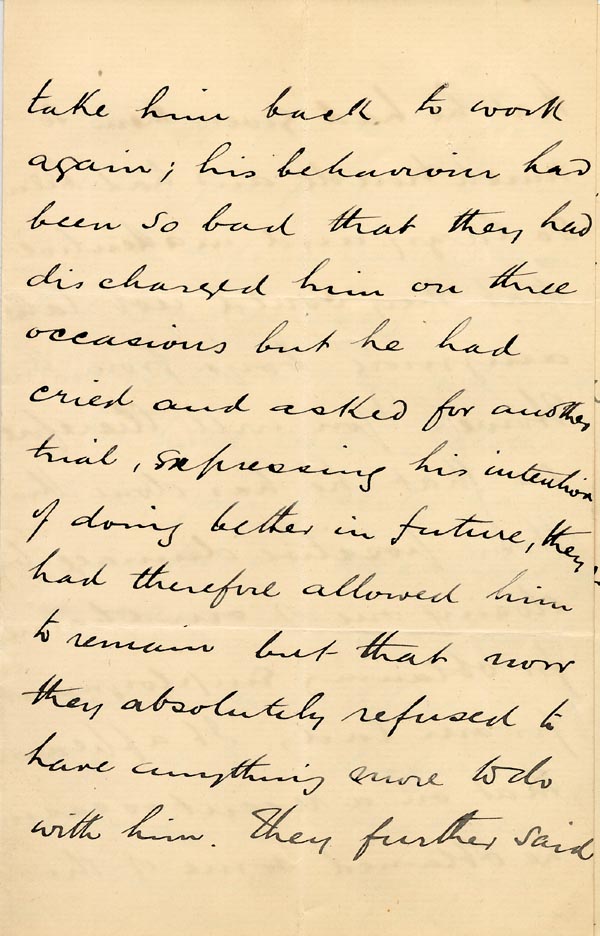 take him back to work
again; his behaviour had
been so bad that they had
discharged him on three
occasions but he had
cried and asked for another
trial, expressing his intention
of doing better in future, they
had therefore allowed him
to remain but that now
they absolutely refused to
have anything more to do
with him. They further said